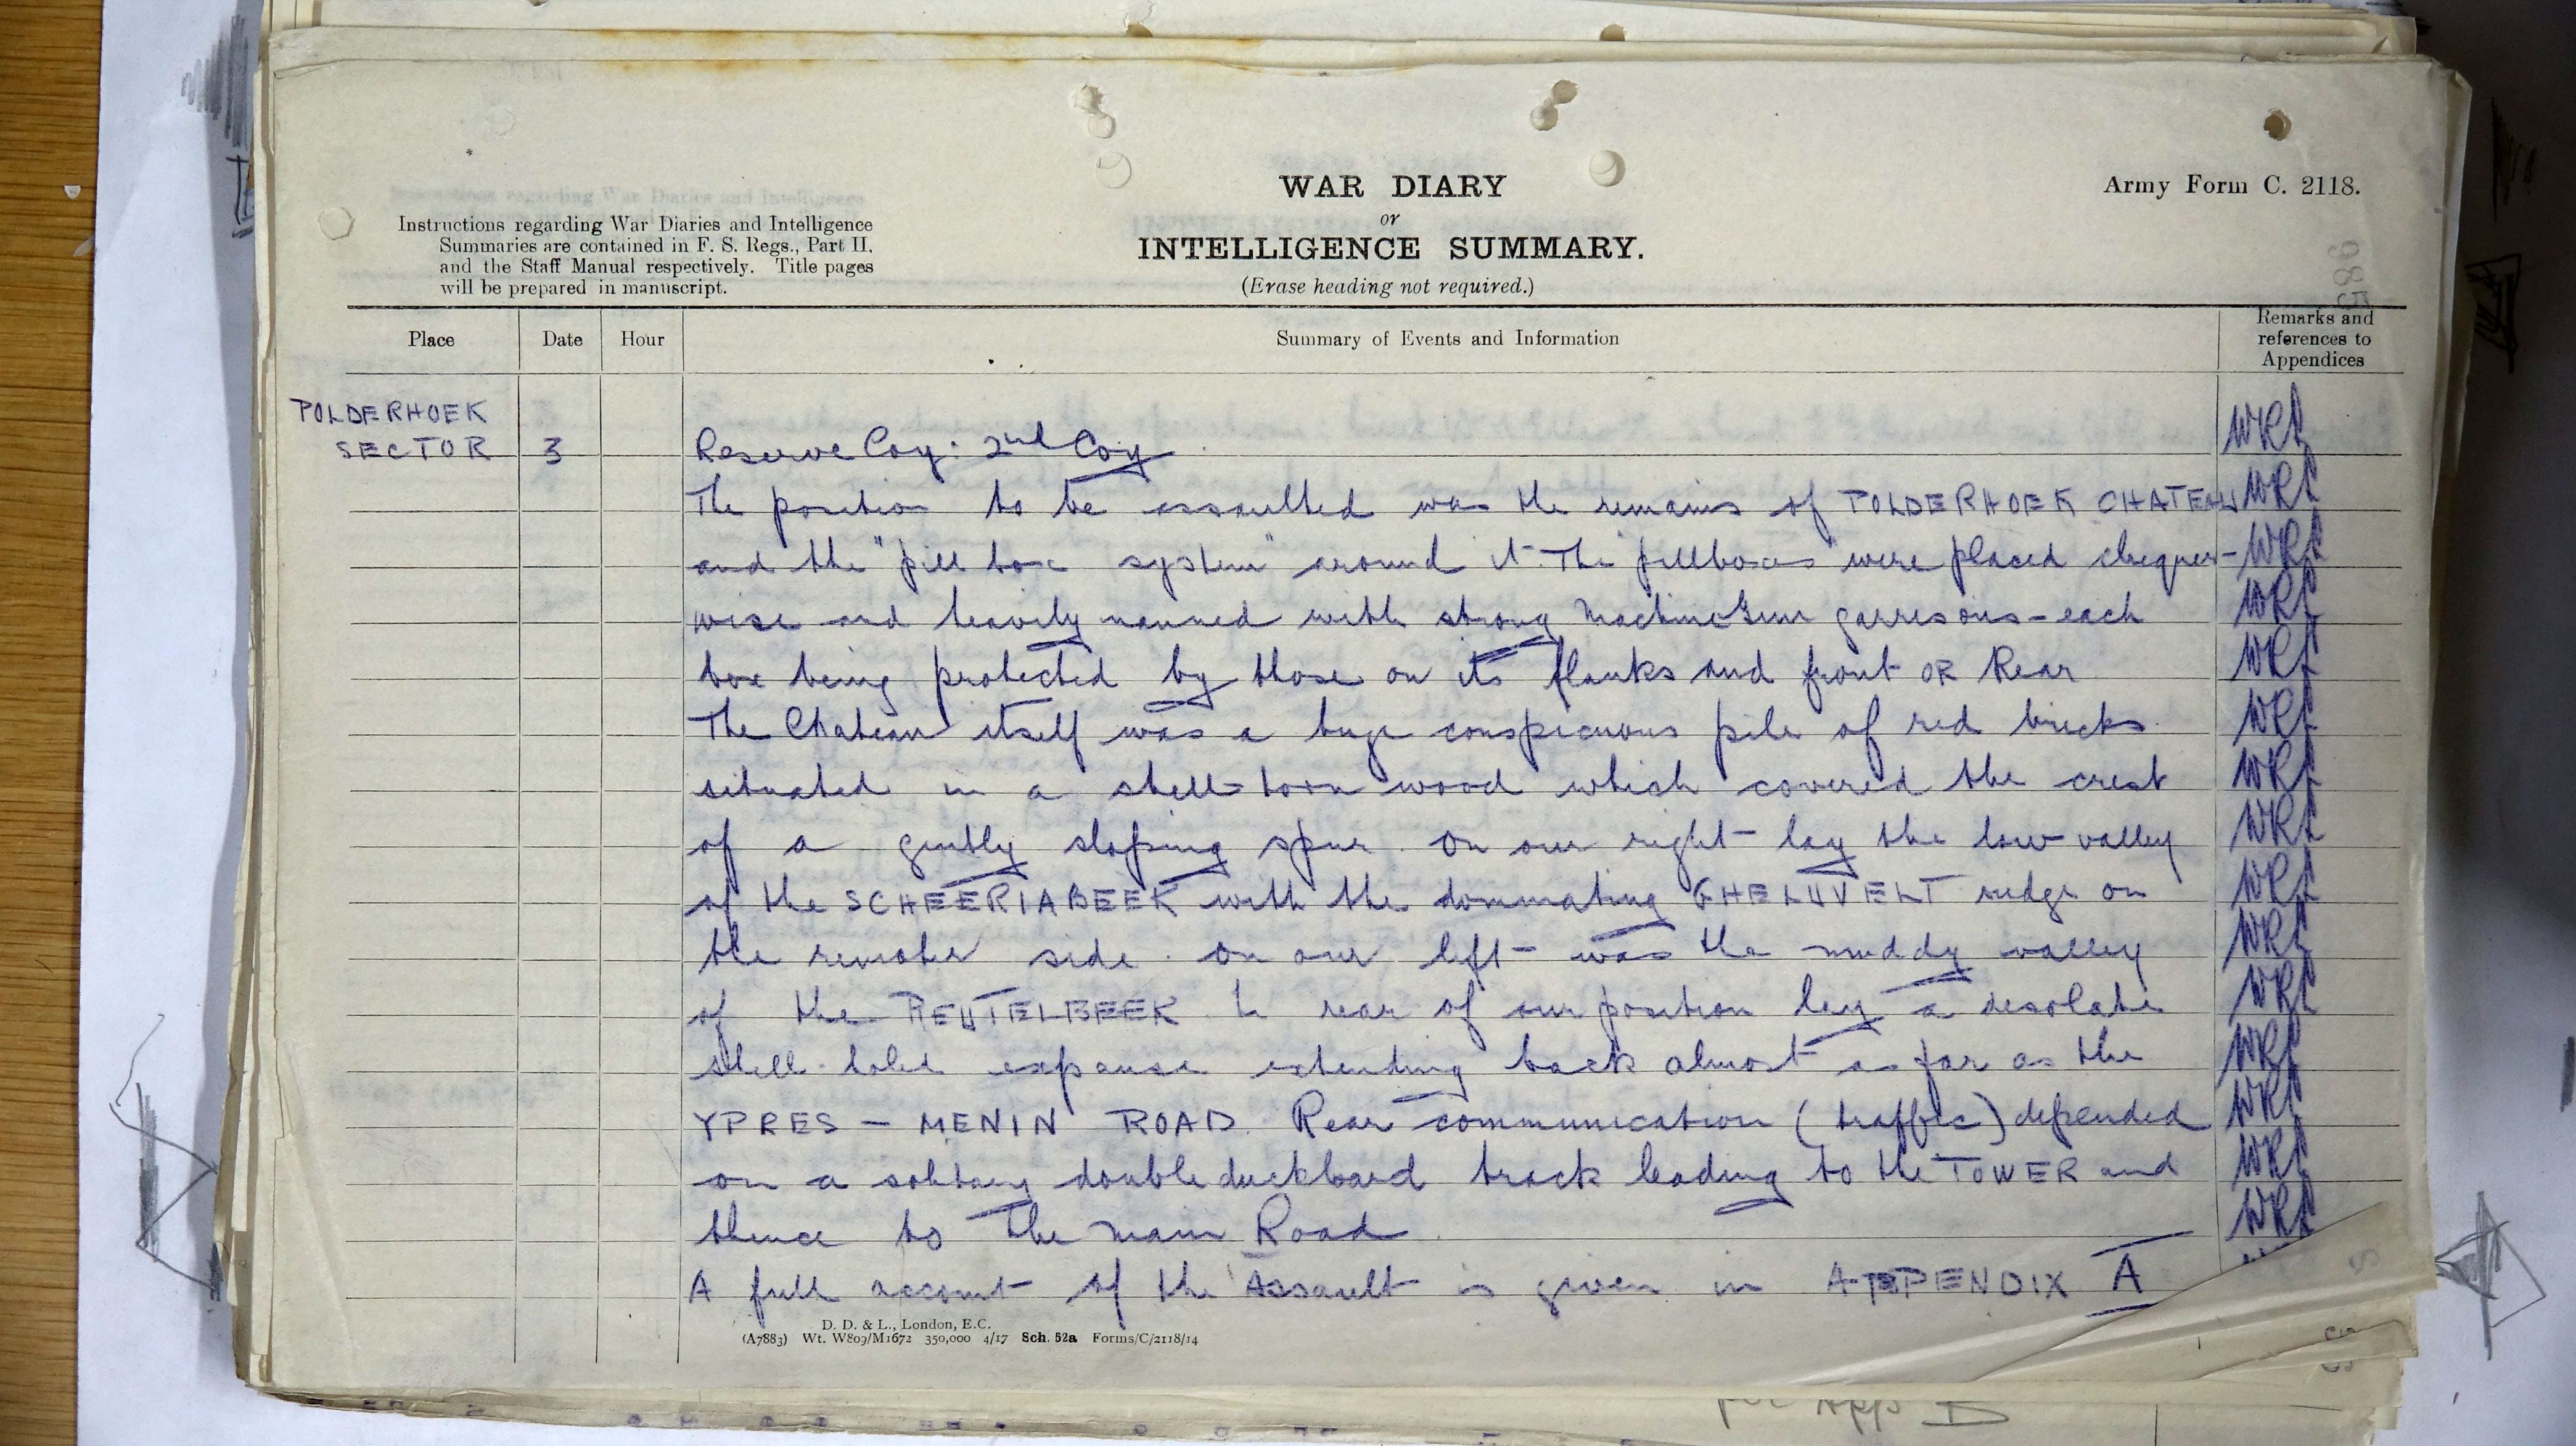 WAR DIARY
or
INTELLIGENCE SUMMARY.
(Erase heading not required.)
Army Form C. 2118.
Instructions regarding War Diaries and Intelligence
Summaries are contained in F. S. Regs., Part II.
and the Staff Manual respectively. Title pages
will be prepared in manuscript.
Place Date Hour Summary of Events and Information Remarks and references to Appendices
POLDERHOEK
SECTOR 3 Reserve Coy: 2nd Coy
The position to be assaulted was the remains of POLDERHOEK CHATEAU
and the "pill box system" around it. The "pillboxes" were placed chequer-
wise and heavily manned with strong Machine Gun garrisons - each
box being protected by those on its flanks and front OR Rear
The Chateau itself was a huge conspicuous pile of red bricks
situated in a shell-torn wood which covered the crest
of a gently sloping spur. On our right lay the low valley
of the SCHEERIABEEK with the dominating GHELUVELT ridge on
the remoter side. On our left was the muddy valley
of the REUTELBEEK. In rear of our position lay a desolate
shell-holed expanse extending back almost as far as the
YPRES - MENIN ROAD. Rear communication (traffic) depended
on a solitary double duckboard track leading to the TOWER and
thence to the main Road.
A full account of the Assault is given in APPENDIX A
D. D. & L., London, E.C.
(A7883) Wt. W809/M1672 350,000 4/17 Sch. 52a Forms/C/2118/14